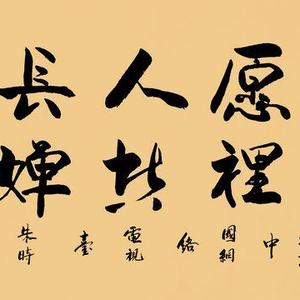 愿人長
裡共嬋
中國網絡電視臺朱時